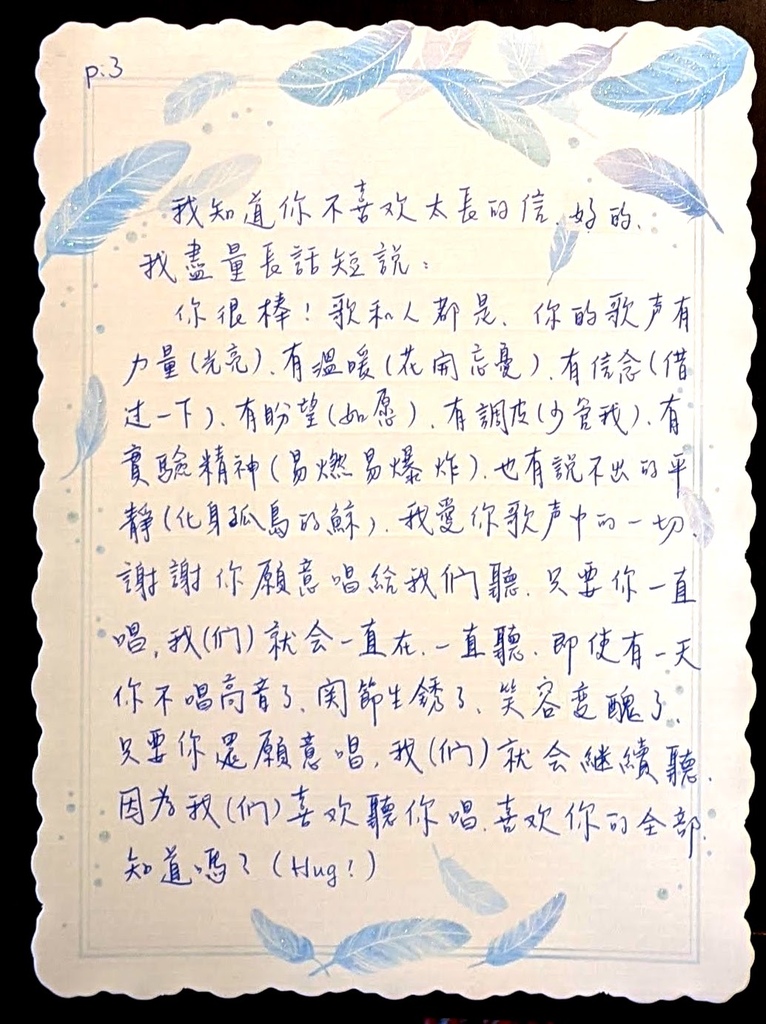 p.3
我知道你不喜欢太長的信、好的、
我盡量長話短說：
你很棒！歌和人都是、你的歌声有
力量(光亮)、有溫暖(花開忘憂)、有信念(借
过一下)、有盼望(如愿)、有調皮(少管我)、有
實驗精神(易燃易爆炸)、也有說不出的平
靜(化身孤島的鯨)、我愛你歌声中的一切、
謝謝你願意唱給我们聽、只要你一直
唱，我(们)就会一直在、一直聽、即使有一天
你不唱高音了、関節生銹了、笑容变醜了、
只要你還願意唱，我(们)就会継續聽、
因为我(们)喜欢聽你唱、喜欢你的全部、
知道嗎？(Hug!)